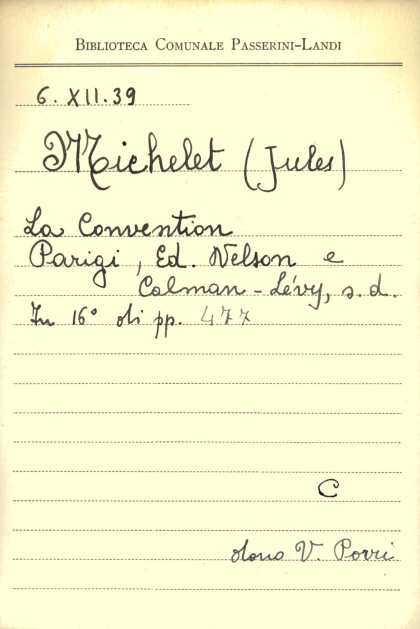 BIBLIOTECA COMUNALE PASSERINI-LANDI
6. XII. 39
Michelet (Jules)
La Convention
Parigi, Ed. Nelson e
Colman-Lévy, s. d.
In 16° di pp. 477
C
dono V. Porri